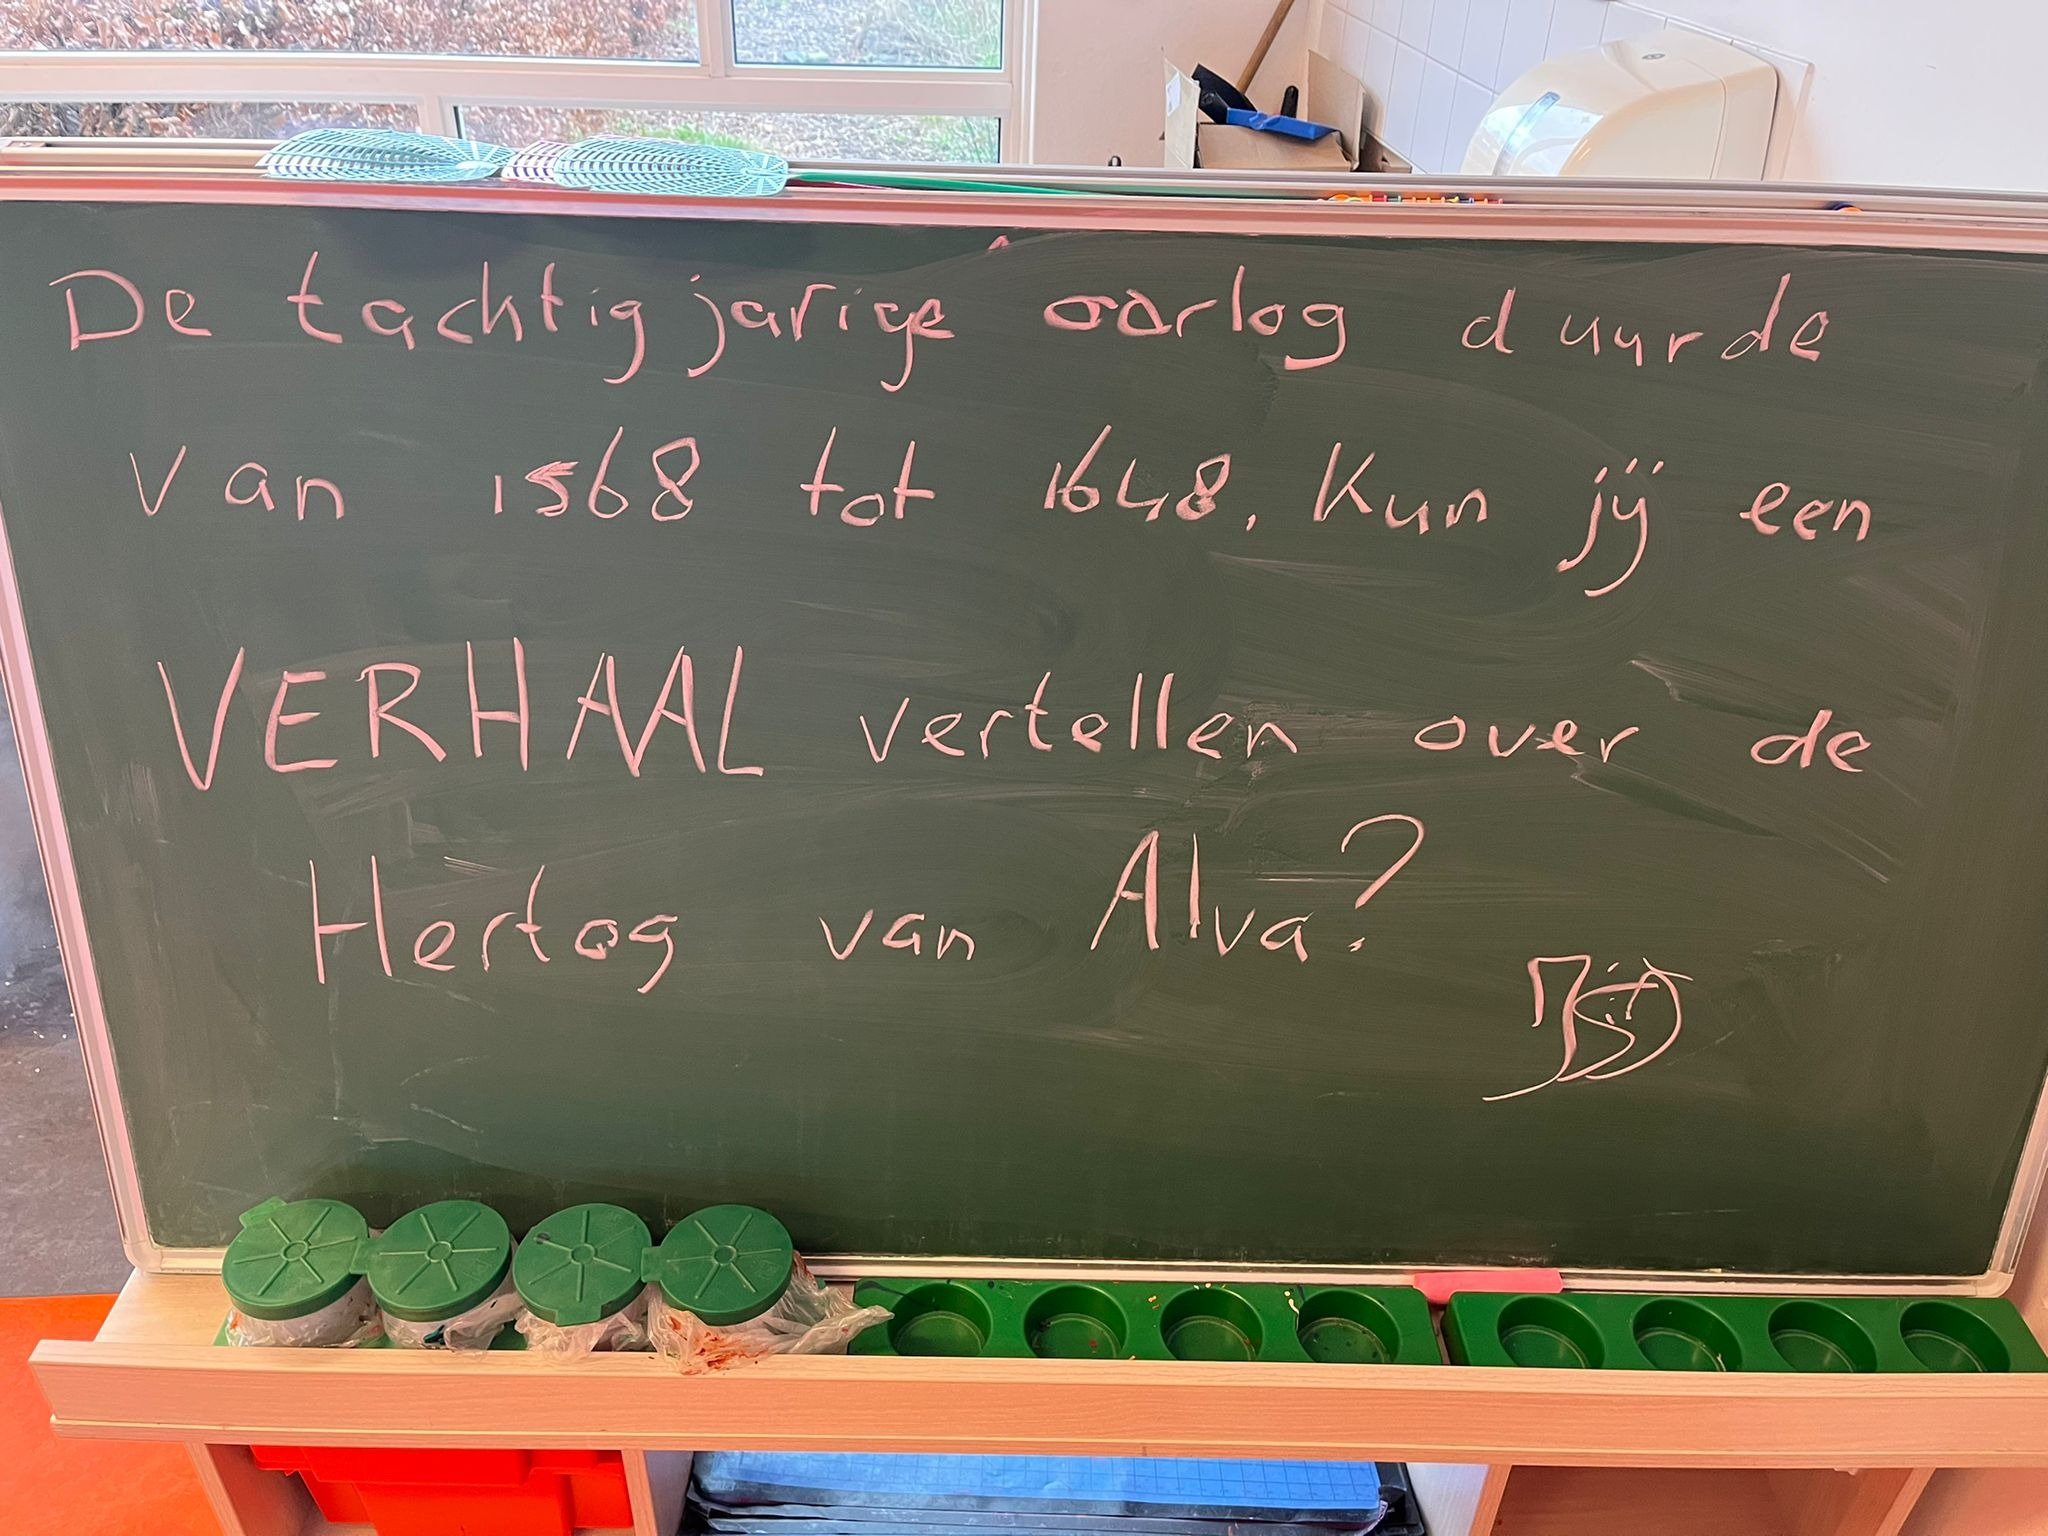 De tachtigjarige oorlog duurde
van 1568 tot 1648. Kun jij een
VERHAAL vertellen over de
Hertog van Alva?